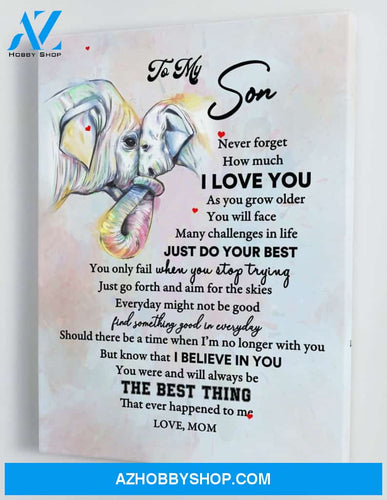 AZ
HOBBY SHOP
To My
Son
Never forget
How much
I LOVE YOU
As you grow older
You will face
Many challenges in life
JUST DO YOUR BEST
You only fail when you stop trying
Just go forth and aim for the skies
Everyday might not be good
find something good in everyday
Should there be a time when I'm no longer with you
But know that I BELIEVE IN YOU
You were and will always be
THE BEST THING
That ever happened to me
LOVE, MOM
AZHOBBYSHOP.COM